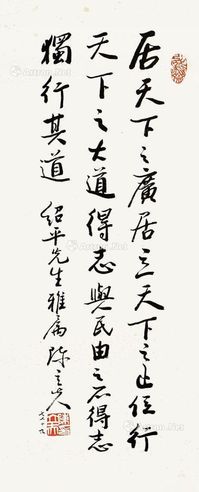 居天下之廣居立天下之正位行
天下之大道得志與民由之不得志
獨行其道 紹平先生雅屬 陳立夫